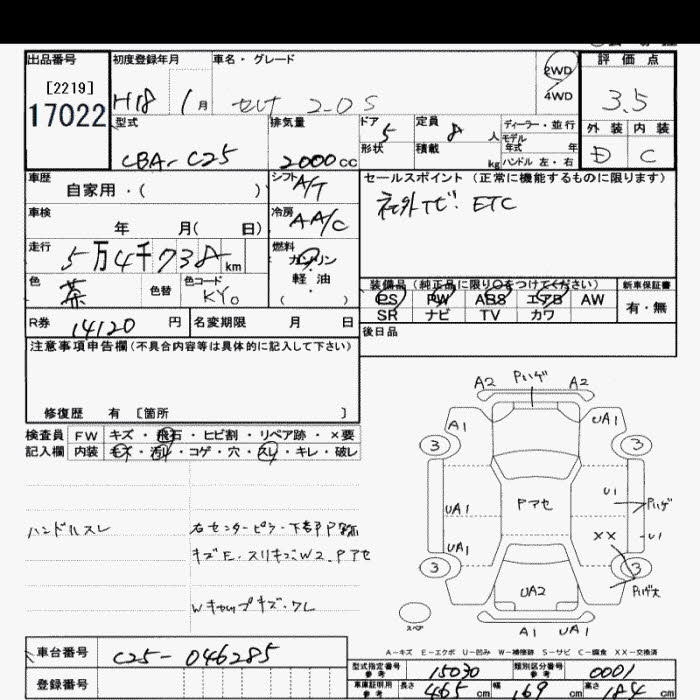 出品番号 初度登録年月 車名・グレード 2WD 4WD 評価点
[2219]
17022 H18 1月 セレナ 2.0S 3.5
型式 排気量 ドア 定員 ディーラー・並行 外装 内装
CBA-C25 2000cc 5 8人 モデル年式 年 D C
形状 積載 kg ハンドル 左・右
車歴 シフト セールスポイント (正常に機能するものに限ります)
自家用・( ) A/T 社外TV. ETC
車検 冷房
年 月( 日) AA/C
走行 燃料
5万4千738km ガソリン
色 色替 色コード 軽油
茶 KY0 ( ・ )
装備品(純正品に限り○をつけてください) 新車保証書
PS PW ABS エアB AW 有・無
SR ナビ TV カワ
R券 14120円 名変期限 月 日 後日品
注意事項申告欄(不具合内容等は具体的に記入して下さい)
修復歴 有 〔箇所 〕
検査員 FW キズ・飛石・ヒビ割・リペア跡・×要
記入欄 内装 キズ・汚れ・コゲ・穴・スレ・キレ・破レ
ハンドルスレ 右センターピラー下部P跡
キズE.スリキズW2.Pアセ
Wキャップキズ.ワレ
A2 Pハゲ A2
A1 UA1
3 3
UA1 Pアセ U1 Pハゲ
UA1 XX U1
3 3
UA2 Pハゲ大
スペア A1 UA1
A-キズ E-エクボ U-凹み W-補修跡 S-サビ C-腐食 XX-交換済
車台番号 C25-046285
登録番号
型式指定番号 参考 15030 類別区分番号 参考 0001
車庫証明用 参考 長さ 465cm 幅 169cm 高さ 184cm